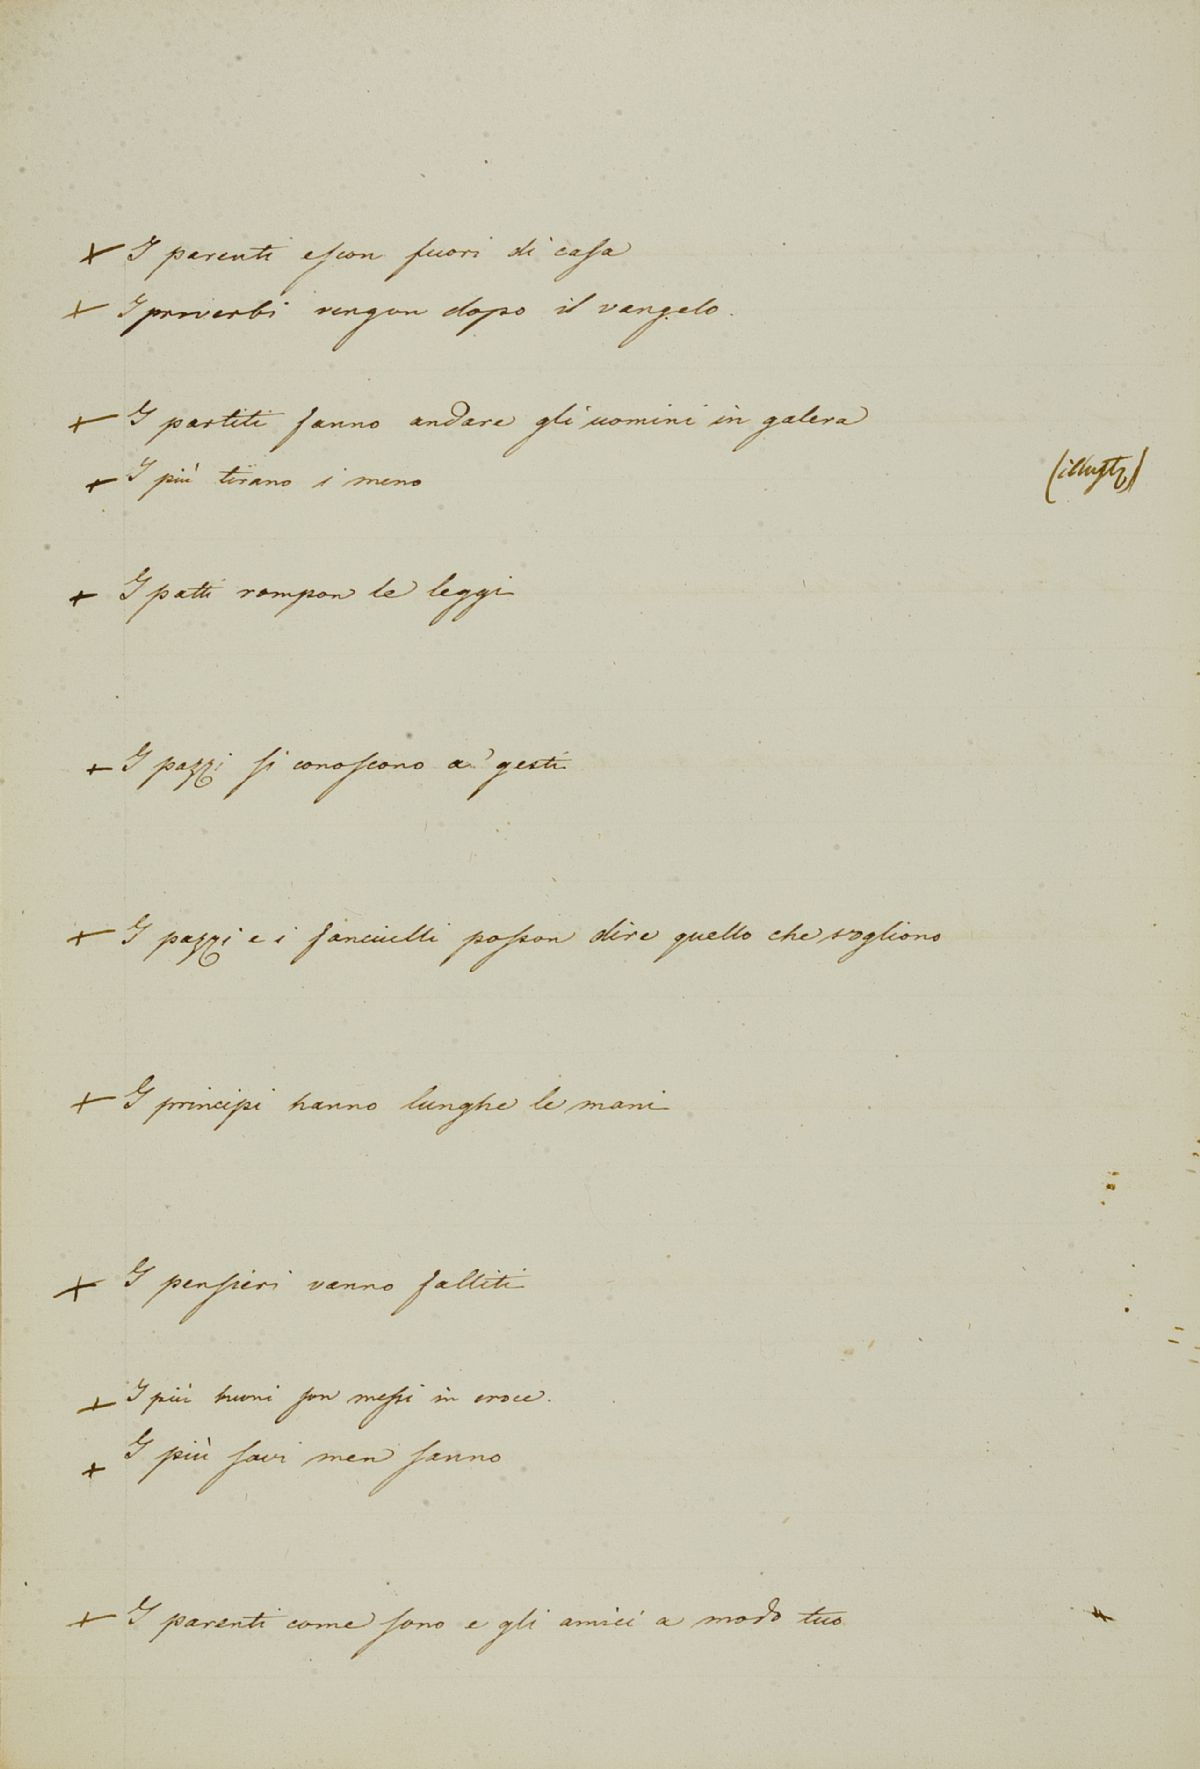 + I parenti escon fuori di casa
+ I proverbi vengon dopo il vangelo.
+ I partiti fanno andare gli uomini in galera
+ I più tirano i meno (illustr)
+ I patti rompon le leggi
+ I pazzi si conoscono a' gesti
+ I pazzi e i fanciulli posson dire quello che vogliono
+ I principi hanno lunghe le mani
+ I pensieri vanno falliti
+ I più buoni son messi in croce.
+ I più savi men sanno
+ I parenti come sono e gli amici a modo tuo